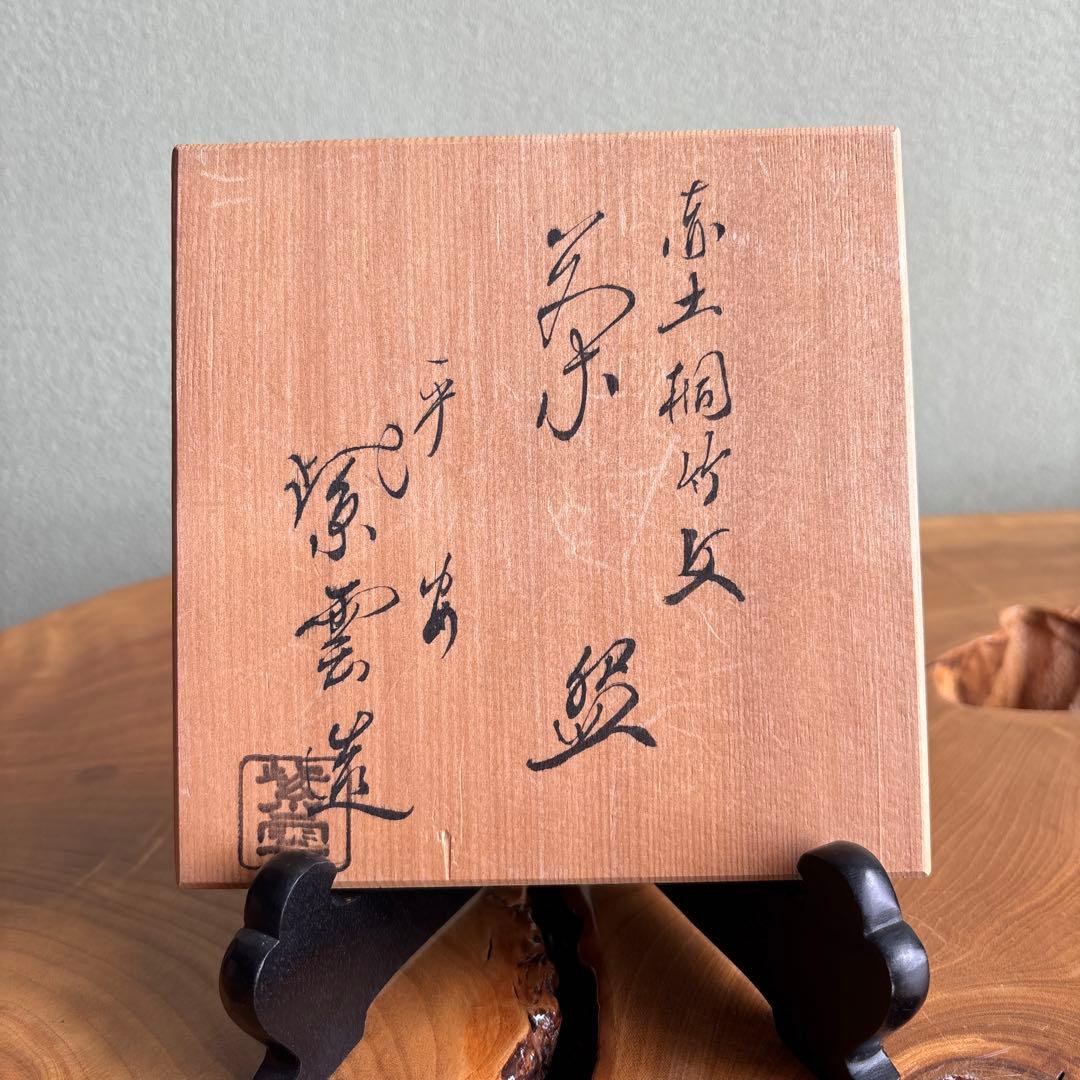 赤土桐竹文
茶盌
平安
紫雲造
紫雲